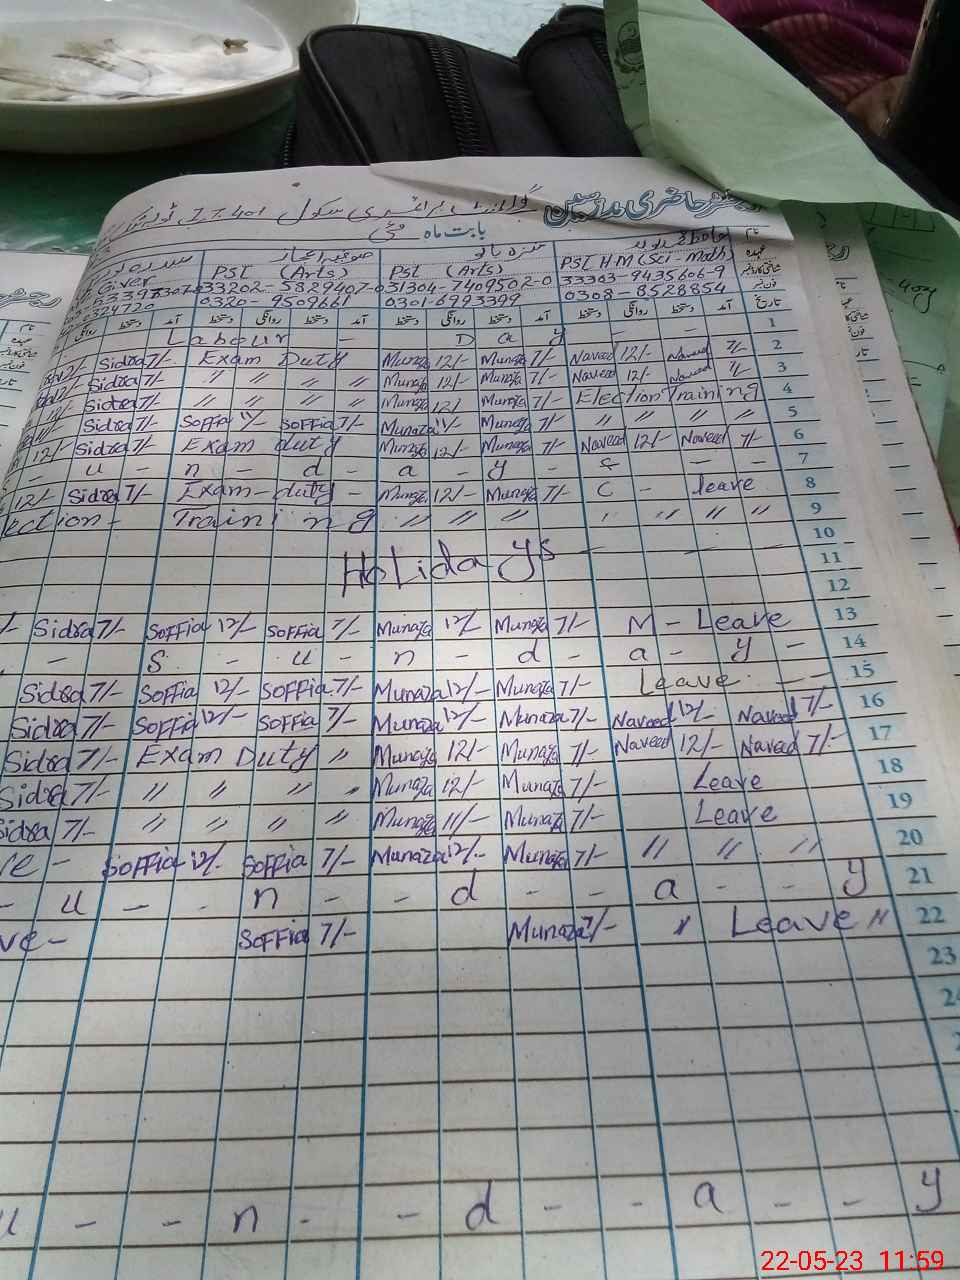 رجسٹر حاضری مدرسین
بابت ماہ مئی
Giver PST (Arts) PST (Arts) PST HM (Sci-Math)
33202-5829407-0 31304-7409502-0 33303-9435606-9
0320-9509661 0301-6993399 0308-8528854
روانگی دستخط آمد دستخط روانگی دستخط آمد دستخط روانگی دستخط آمد تاریخ
Labour - D a y - - 1
Sidra 7/- Exam Duty Munaza 12/- Munaza 7/- Naveed 12/- Naveed 7/- 2
Sidra 7/- " " " " Munaza 12/- Munaza 7/- Naveed 12/- Naveed 7/- 3
Sidra 7/- " " " " Munaza 12/ Munaza 7/- Election Training 4
Sidra 7/- Soffia 11/- Soffia 7/- Munaza 11/- Munaza 7/- " " " " 5
12/- Sidra 7/- Exam duty Munaza 12/- Munaza 7/- Naveed 12/- Naveed 7/- 6
- u - n - d - a - y - - - 7
12/- Sidra 7/- Exam-duty - Munaza 12/- Munaza 7/- C - leave 8
ection - Training " " " " " " 9
10
Holidays - - - 11
12
Sidra 7/- Soffia 12/- Soffia 7/- Munaza 12/- Munaza 7/- M - Leave 13
- S - u - n - d - a - y - 14
Sidra 7/- Soffia 12/- Soffia 7/- Munaza 12/- Munaza 7/- Leave - - 15
Sidra 7/- Soffia 12/- Soffia 7/- Munaza 12/- Munaza 7/- Naveed 12/- Naveed 7/- 16
Sidra 7/- Exam Duty " Munaza 12/- Munaza 7/- Naveed 12/- Naveed 7/- 17
Sidra 7/- " " " " Munaza 12/- Munaza 7/- Leave 18
Sidra 7/- " " " " Munaza 11/- Munaza 7/- Leave 19
ve - Soffia 12/- Soffia 7/- Munaza 12/- Munaza 7/- " " " 20
- u - - n - - d - - a - - y 21
ve- Soffia 7/- Munaza 7/- " Leave " 22
23
24
u - - n - - d - - a - - y
22-05-23 11:59